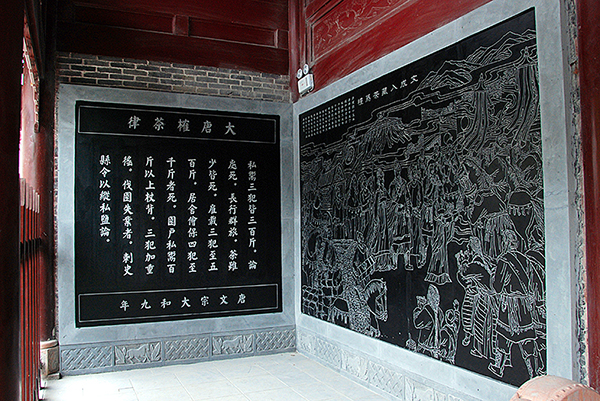 大唐榷茶律
私鬻三犯皆三百斤,論
處死。長行群旅,茶雖
少皆死。雇載三犯至五
百斤,居舍儈保四犯至
千斤者死。園戶私鬻百
斤以上杖背。三犯加重
徭。伐園失業者,刺史
縣令以縱私鹽論。
唐文宗大和九年
文成入藏茶